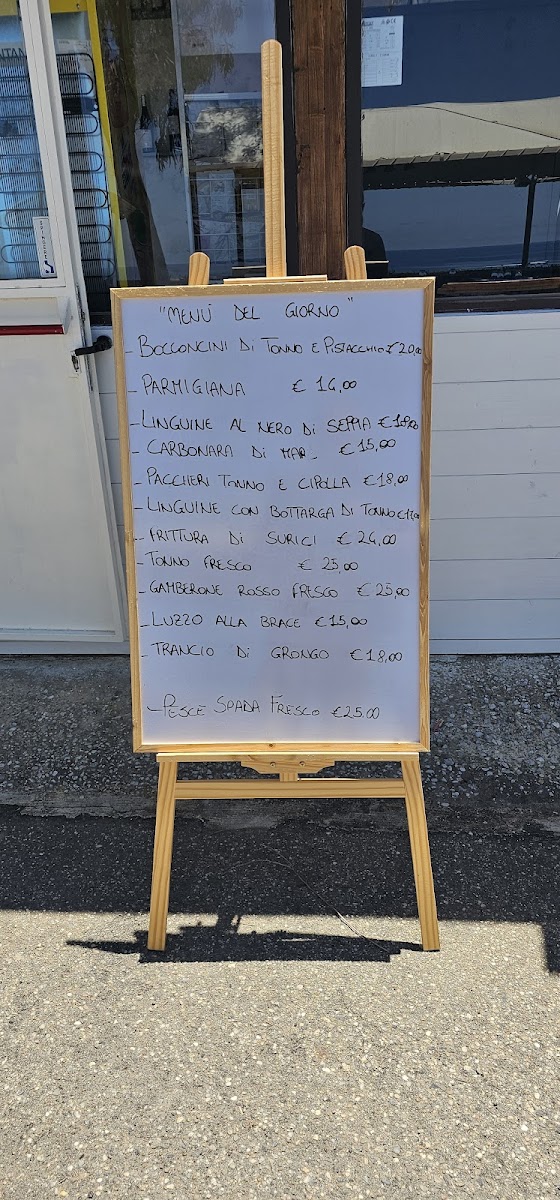 "MENÚ DEL GIORNO"
- BOCCONCINI DI TONNO E PISTACCHIO € 20,00
- PARMIGIANA € 14,00
- LINGUINE AL NERO DI SEPPIA € 18,00
- CARBONARA DI MAR € 15,00
- PACCHERI TONNO E CIPOLLA € 18,00
- LINGUINE CON BOTTARGA DI TONNO
- FRITTURA DI SURICI € 24,00
- TONNO FRESCO € 25,00
- GAMBERONE ROSSO FRESCO € 25,00
- LUZZO ALLA BRACE € 15,00
- TRANCIO DI GRONGO € 18,00
- PESCE SPADA FRESCO € 25,00